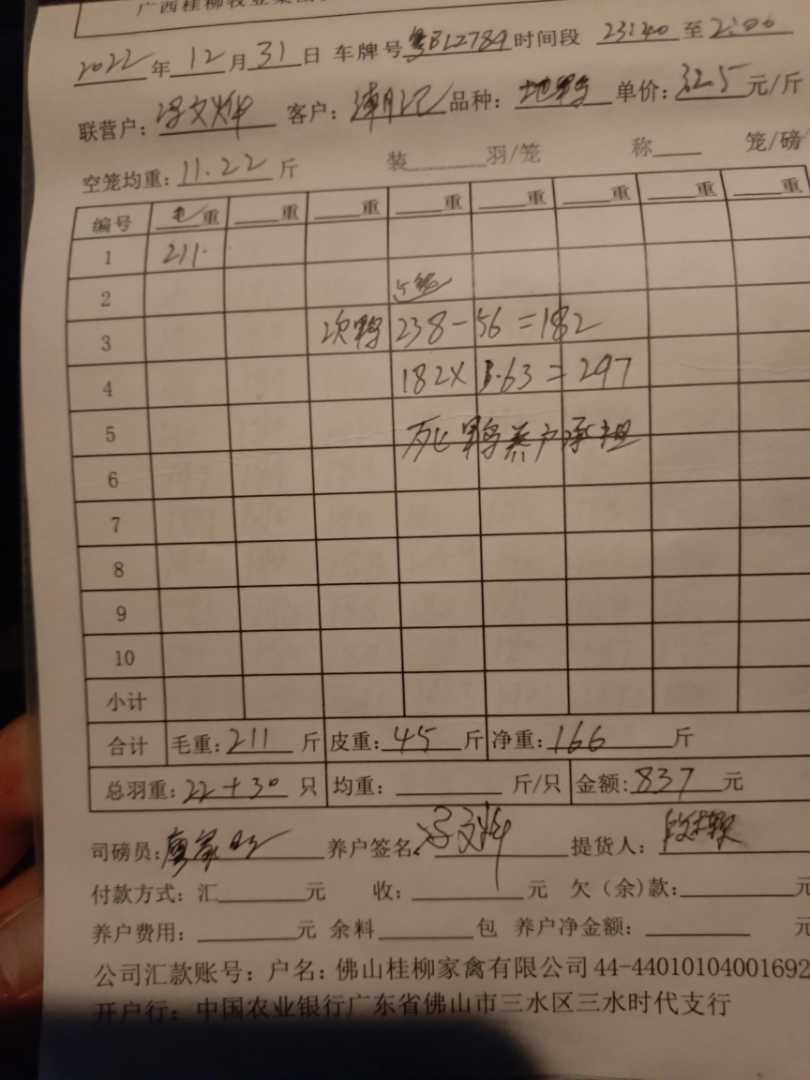 广西桂柳牧业集团
2022年12月31日 车牌号粤BL2789时间段 23:40至2:00
联营户:冯文辉 客户: 品种: 单价:3.25元/斤
空笼均重:11.22斤 装 羽/笼 称 笼/磅
编号 毛重 重 重 重 重 重 重 重
1 211
2 5笼
3 次鸭 238-56=182
4 182×1.63=297
5 死鸭养户承担
6
7
8
9
10
小计
合计 毛重:211斤 皮重:45斤 净重:166斤
总羽重:22+30只 均重: 斤/只 金额:837元
司磅员: 养户签名:冯文辉 提货人:
付款方式:汇 元 收: 元 欠(余)款: 元
养户费用: 元 余料 包 养户净金额: 元
公司汇款账号:户名:佛山桂柳家禽有限公司44-44010104001692
开户行:中国农业银行广东省佛山市三水区三水时代支行